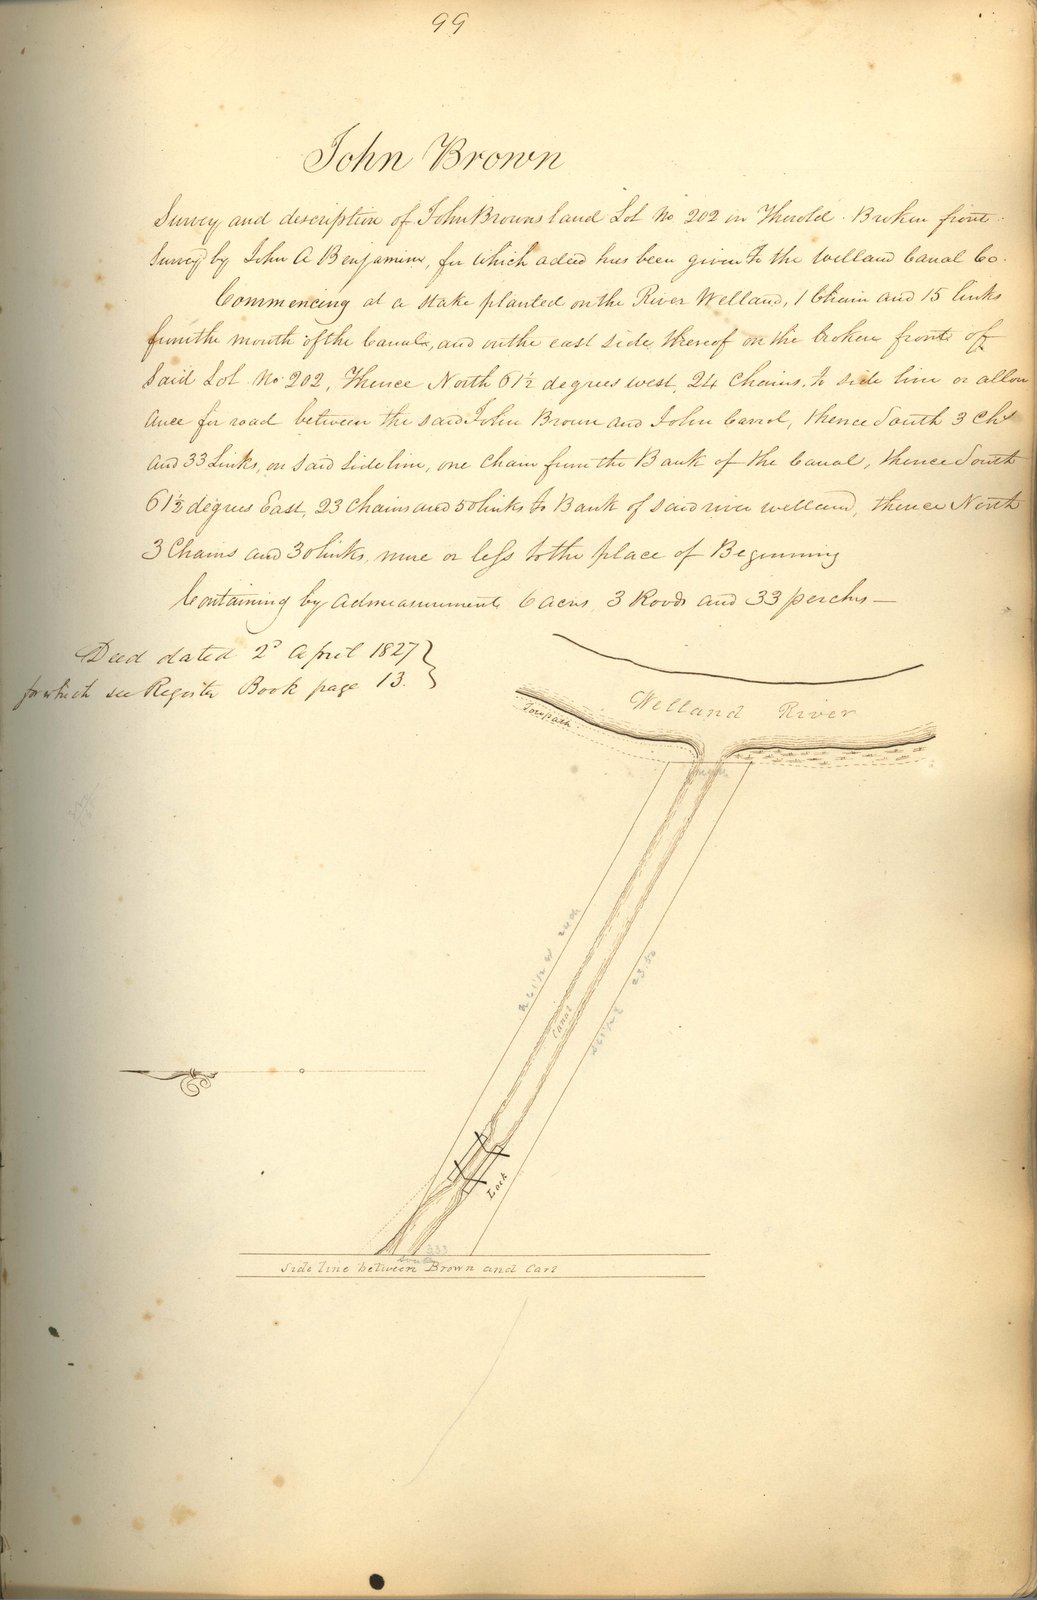 99
John Brown
Survey and description of John Browns land Lot No 202 in Thorold Broken front
Survey by John A Benjamin, for which a deed has been given to the Welland Canal Co.
Commencing at a stake planted on the River Welland, 1 Chain and 15 links
from the mouth of the Canal, and on the east side thereof on the broken front of
Said Lot No 202, Thence North 61½ degrees west, 24 Chains, to side line or allow
ance for road between the said John Brown and John Carrol, thence South 3 Chs
and 33 Links, on said side line, one chain from the Bank of the Canal, thence South
61½ degrees East, 23 Chains and 50 links to Bank of said river welland, thence North
3 Chains and 30 links, more or less to the place of Beginning
Containing by admeasurement 6 acres, 3 Roods and 33 perches —
Deed dated 2d April 1827
for which see Register Book page 13.
Welland River
Towpath
N 61 1/2 W 24 ch
S 61 1/2 E 23.50
Canal
Lock
333
South
Side line between Brown and Carl